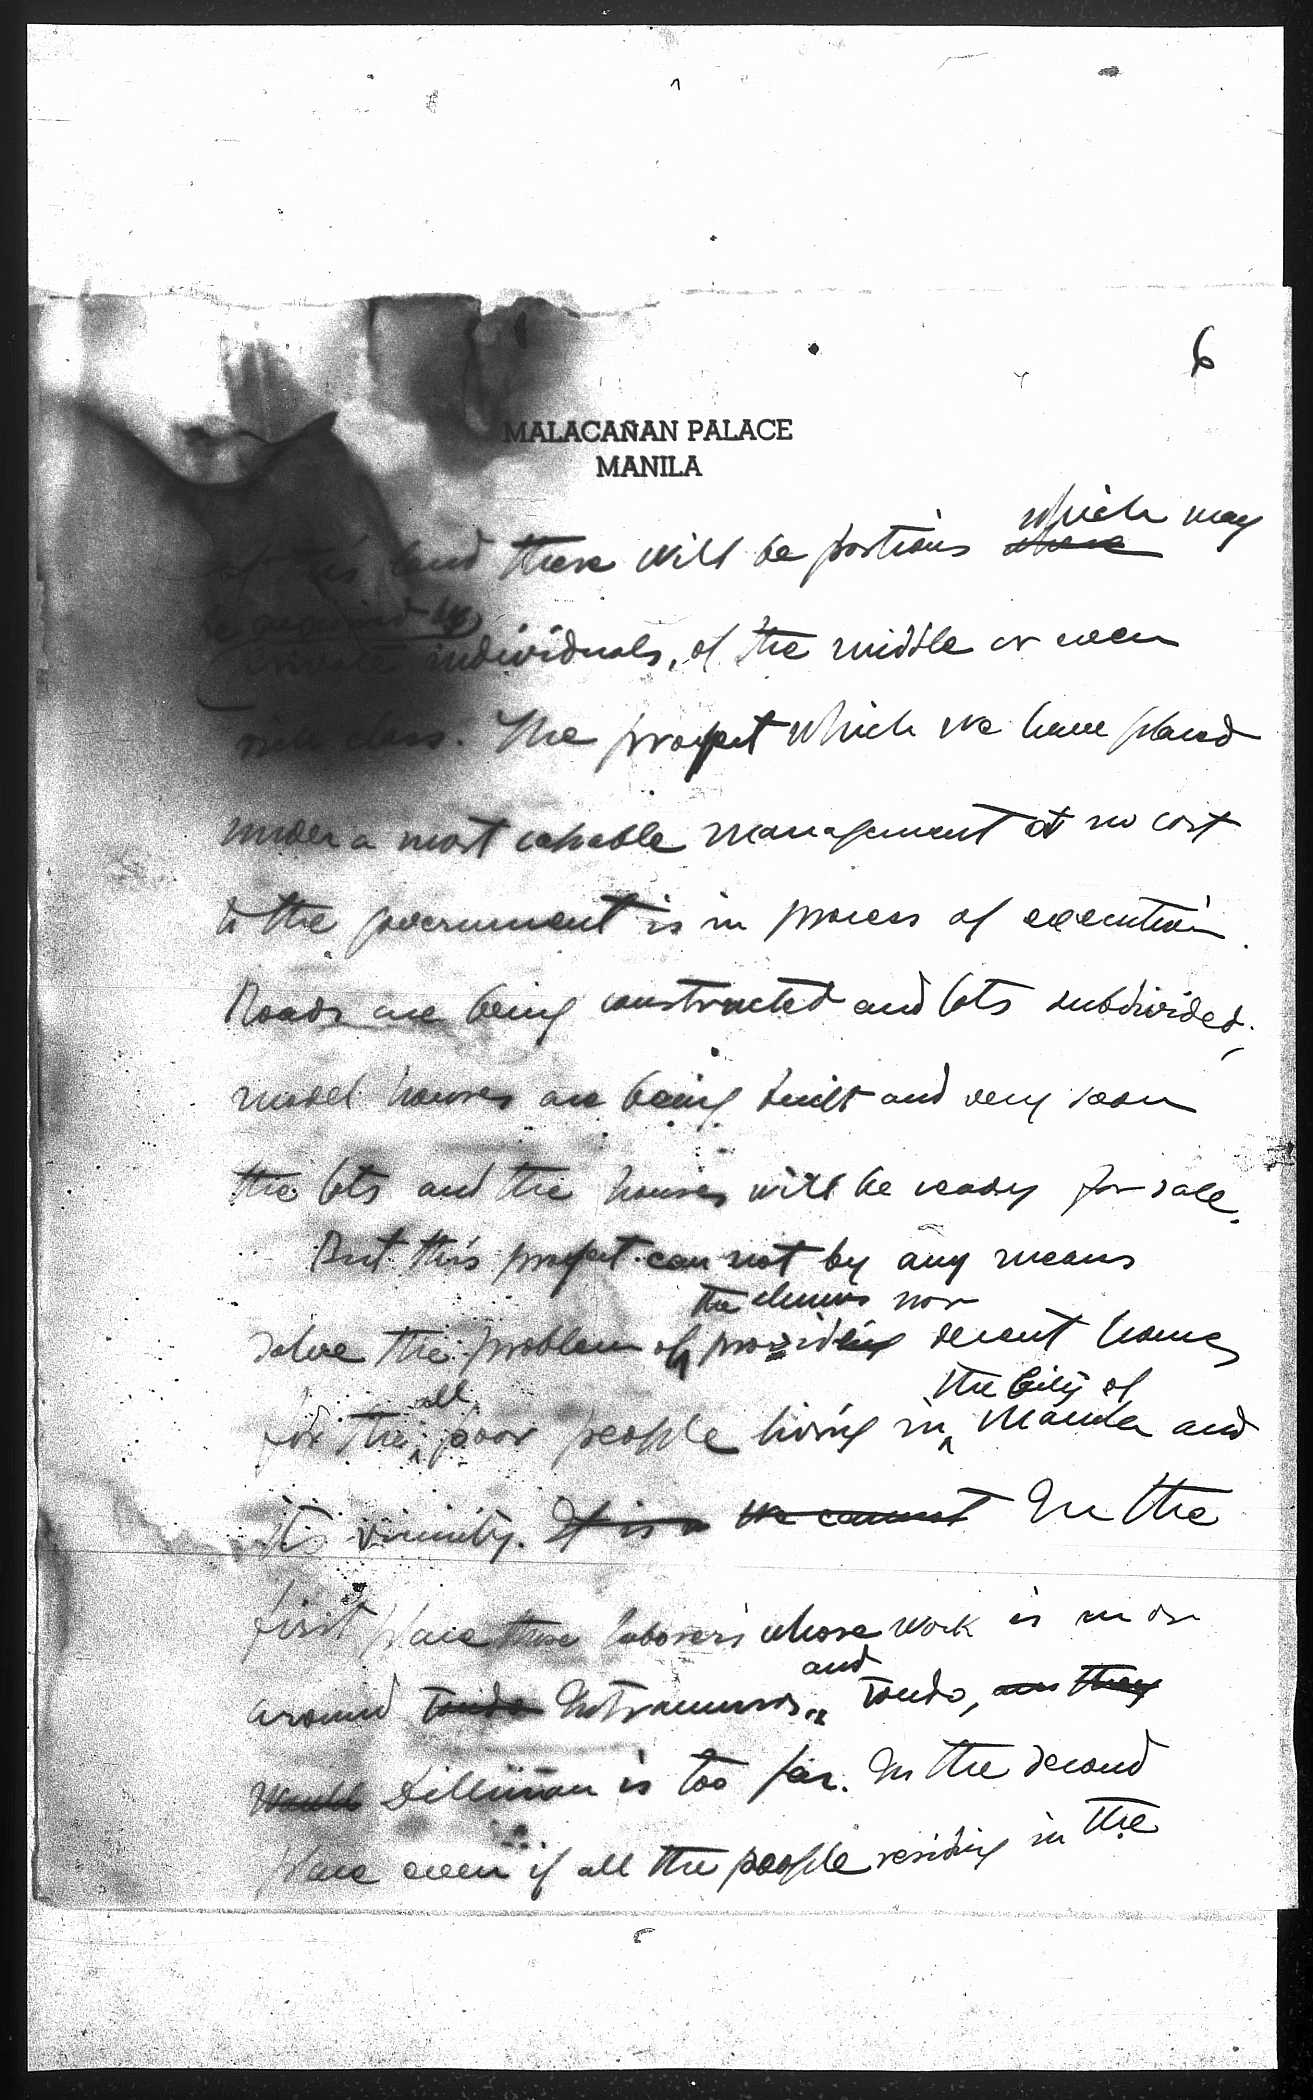 6
MALACAÑAN PALACE
MANILA
which may
of this land there will be portions where
be acquired by
private individuals, of the middle or even
rich class. The project which we have placed
under a most capable management at no cost
to the government is in process of execution.
Roads are being constructed and lots subdivided;
model houses are being built and very soon
the lots and the houses will be ready for sale.
But this project can not by any means
the slums nor
solve the problem of providing decent homes
all the City of
for the poor people living in Manila and
its vicinity. It is a We cannot In the
first place these laborers whose work is in or
and
around Tondo Intramuros Tondo, and they
would Dilliman is too far. In the second
place even if all the people residing in the